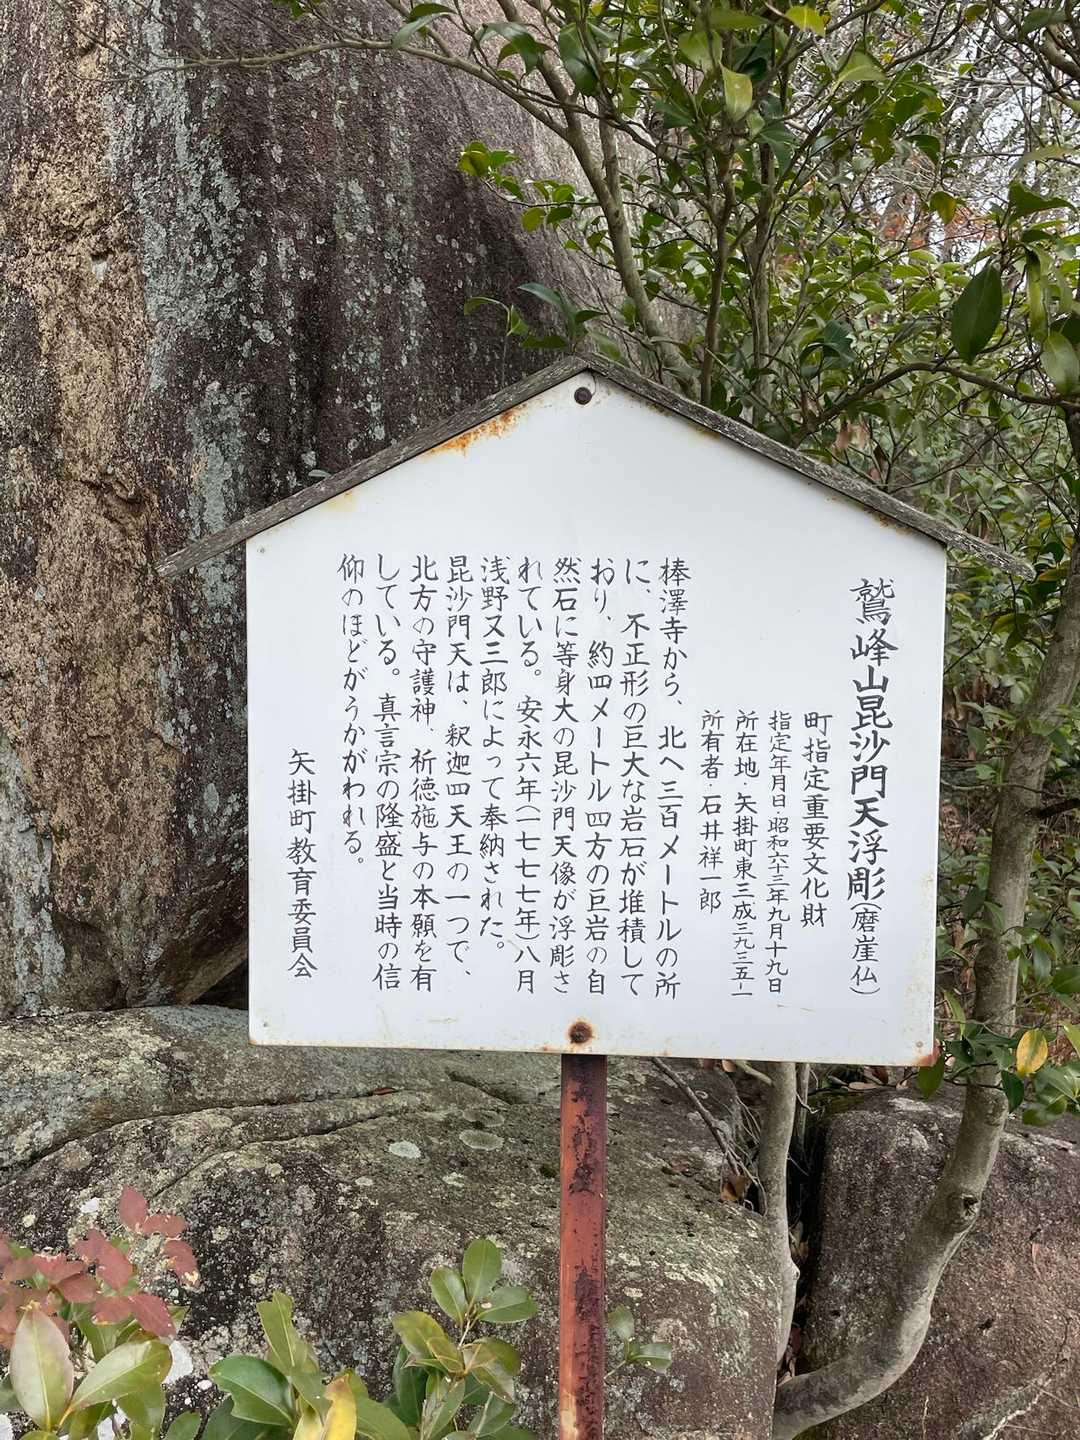 鷲峰山毘沙門天浮彫(磨崖仏)
町指定重要文化財
指定年月日・昭和六十三年九月十九日
所在地・矢掛町東三成三九三五-一
所有者・石井祥一郎
棒澤寺から、北へ三百メートルの所
に、不正形の巨大な岩石が堆積して
おり、約四メートル四方の巨岩の自
然石に等身大の毘沙門天像が浮彫さ
れている。安永六年(一七七七年)八月
浅野又三郎によって奉納された。
毘沙門天は、釈迦四天王の一つで、
北方の守護神、祈徳施与の本願を有
している。真言宗の隆盛と当時の信
仰のほどがうかがわれる。
矢掛町教育委員会